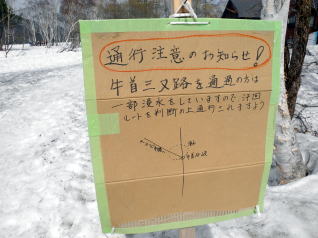 通行注意のお知らせ!
牛首三叉路を通過の方は
一部浸水をしていますので、迂回
ルートを判断の上通行されますよう